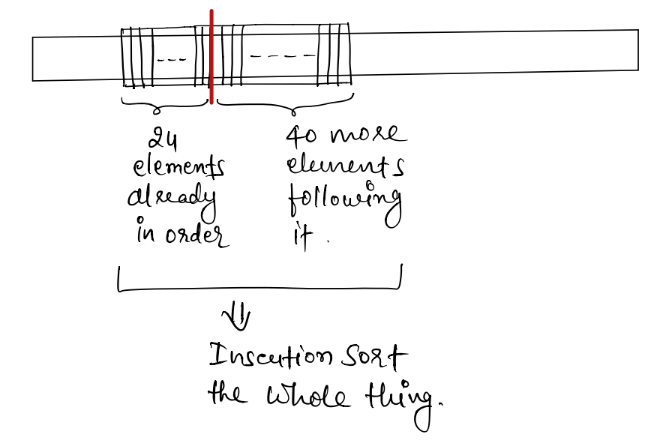 24
elements
already
in order
40 more
elements
following
it.
Insertion Sort
the whole thing.